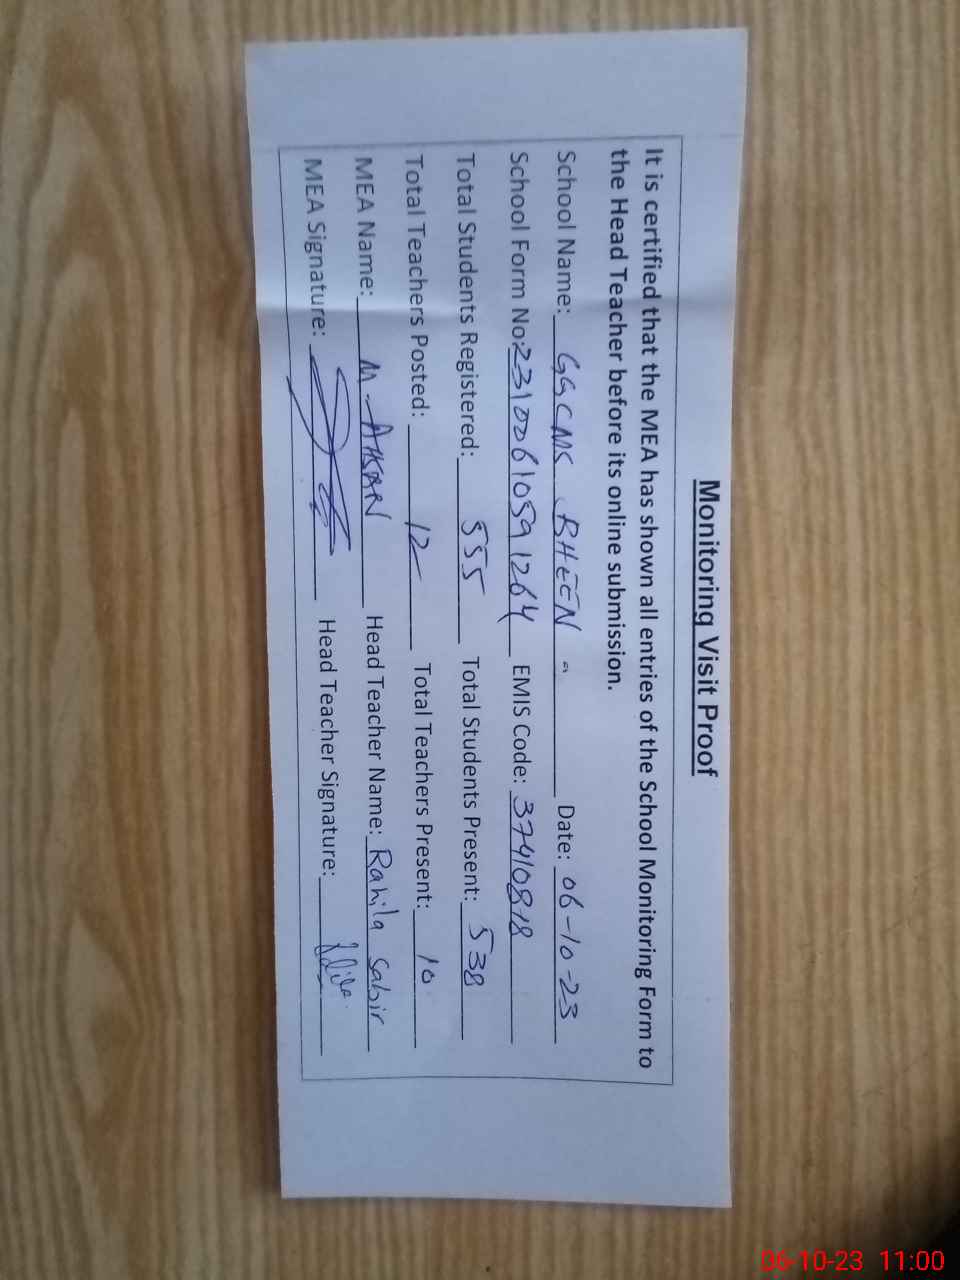 Monitoring Visit Proof
It is certified that the MEA has shown all entries of the School Monitoring Form to
the Head Teacher before its online submission.
School Name: GGCMS BHEEN Date: 06-10-23
School Form No: 23100610591264 EMIS Code: 37410818
Total Students Registered: 555 Total Students Present: 538
Total Teachers Posted: 12 Total Teachers Present: 10
MEA Name: M. AHSAN Head Teacher Name: Rahila Sabir
MEA Signature: Head Teacher Signature:
06-10-23 11:00